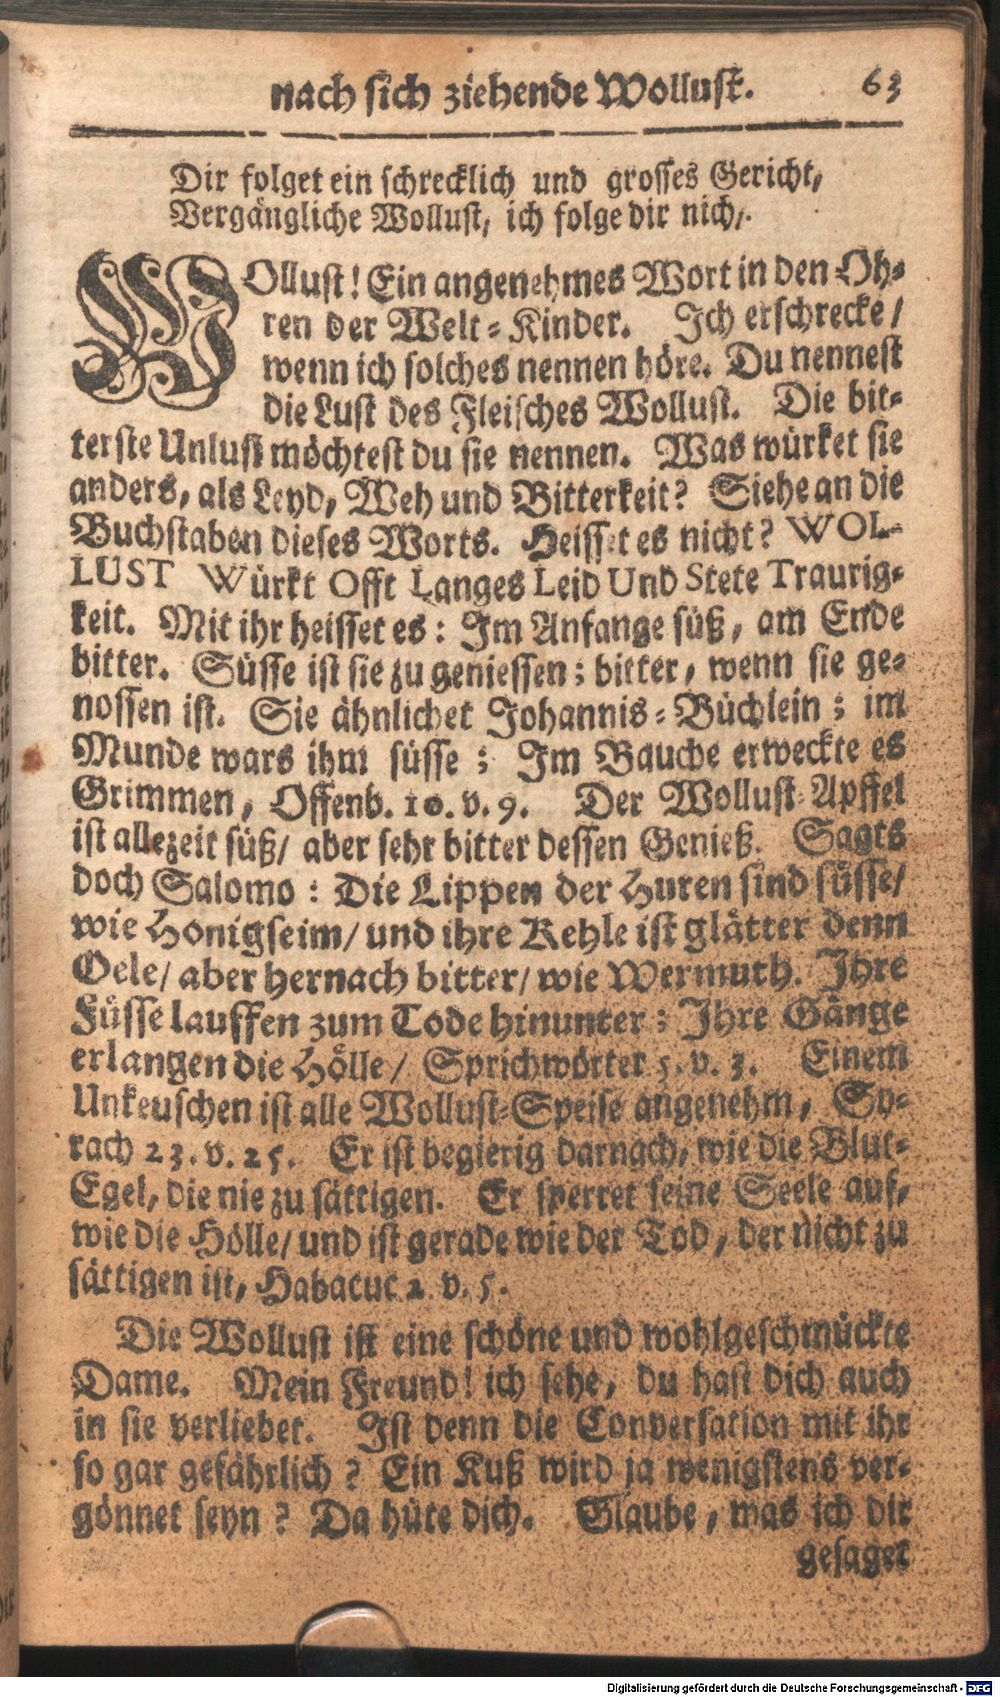 nach sich ziehende Wollust. 63
Dir folget ein schrecklich und grosses Gericht,
Vergängliche Wollust, ich folge dir nich,.
WOllust! Ein angenehmes Wort in den Oh-
ren der Welt-Kinder. Ich erschrecke/
wenn ich solches nennen höre. Du nennest
die Lust des Fleisches Wollust. Die bit-
terste Unlust möchtest du sie nennen. Was würket sie
anders, als Leyd, Weh und Bitterkeit? Siehe an die
Buchstaben dieses Worts. Heisset es nicht? WOL-
LUST Würkt Offt Langes Leid Und Stete Traurig-
keit. Mit ihr heisset es: Im Anfange süß, am Ende
bitter. Süsse ist sie zu geniessen; bitter, wenn sie ge-
nossen ist. Sie ähnlichet Johannis-Büchlein; im
Munde wars ihm süsse; Im Bauche erweckte es
Grimmen, Offenb. 10. v. 9. Der Wollust-Apffel
ist allezeit süß/ aber sehr bitter dessen Genieß. Sagts
doch Salomo: Die Lippen der Huren sind süsse/
wie Honigseim/ und ihre Kehle ist glätter denn
Oele/ aber hernach bitter/ wie Wermuth. Ihre
Füsse lauffen zum Tode hinunter; Ihre Gänge
erlangen die Hölle/ Sprichwörter 5. v. 3. Einem
Unkeuschen ist alle Wollust-Speise angenehm, Sy-
rach 23. v. 25. Er ist begierig darnach, wie die Blut-
Egel, die nie zu sättigen. Er sperret seine Seele auf,
wie die Hölle/ und ist gerade wie der Tod, der nicht zu
sättigen ist, Habacuc 2. v. 5.
Die Wollust ist eine schöne und wohlgeschmückte
Dame. Mein Freund! ich sehe, du hast dich auch
in sie verliebet. Ist denn die Conversation mit ihr
so gar gefährlich? Ein Kuß wird ja wenigstens ver-
gönnet seyn? Da hüte dich. Glaube, was ich dir
gesaget
Digitalisierung gefördert durch die Deutsche Forschungsgemeinschaft - DFG